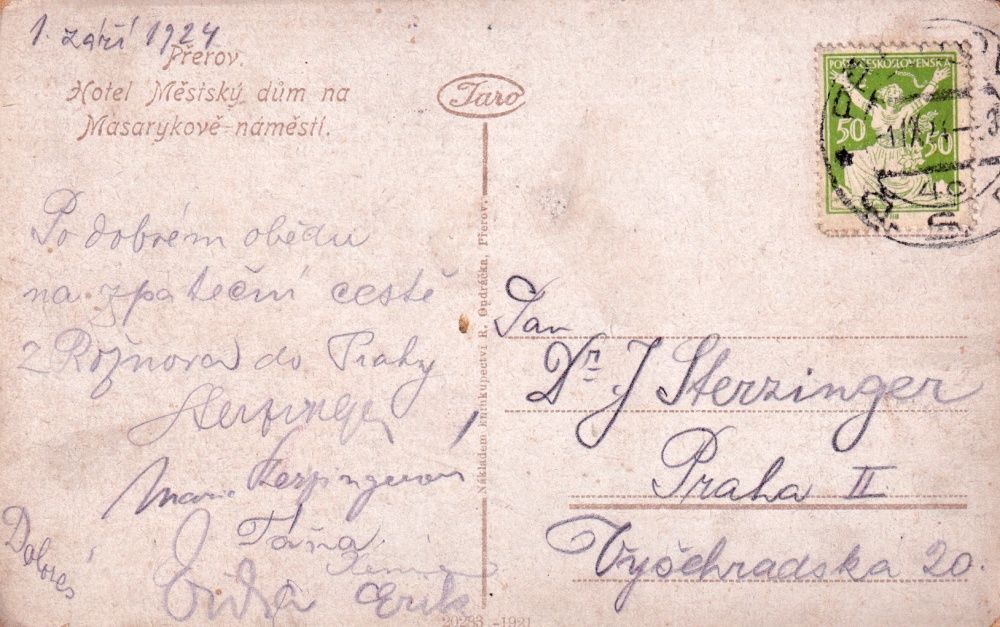 1. září 1924
Přerov.
Hotel Městský dům na
Masarykově náměstí.
Taro
Po dobrém obědu
na zpáteční cestě
z Rožnova do Prahy
Marie
Táňa
Erik
Nákladem knihkupectví R. Ondráčka, Přerov.
20283 -1921
POŠTA ČESKOSLOVENSKÁ
50 50
Pan
Dr J Sterzinger
Praha II
Vyšehradska 20.